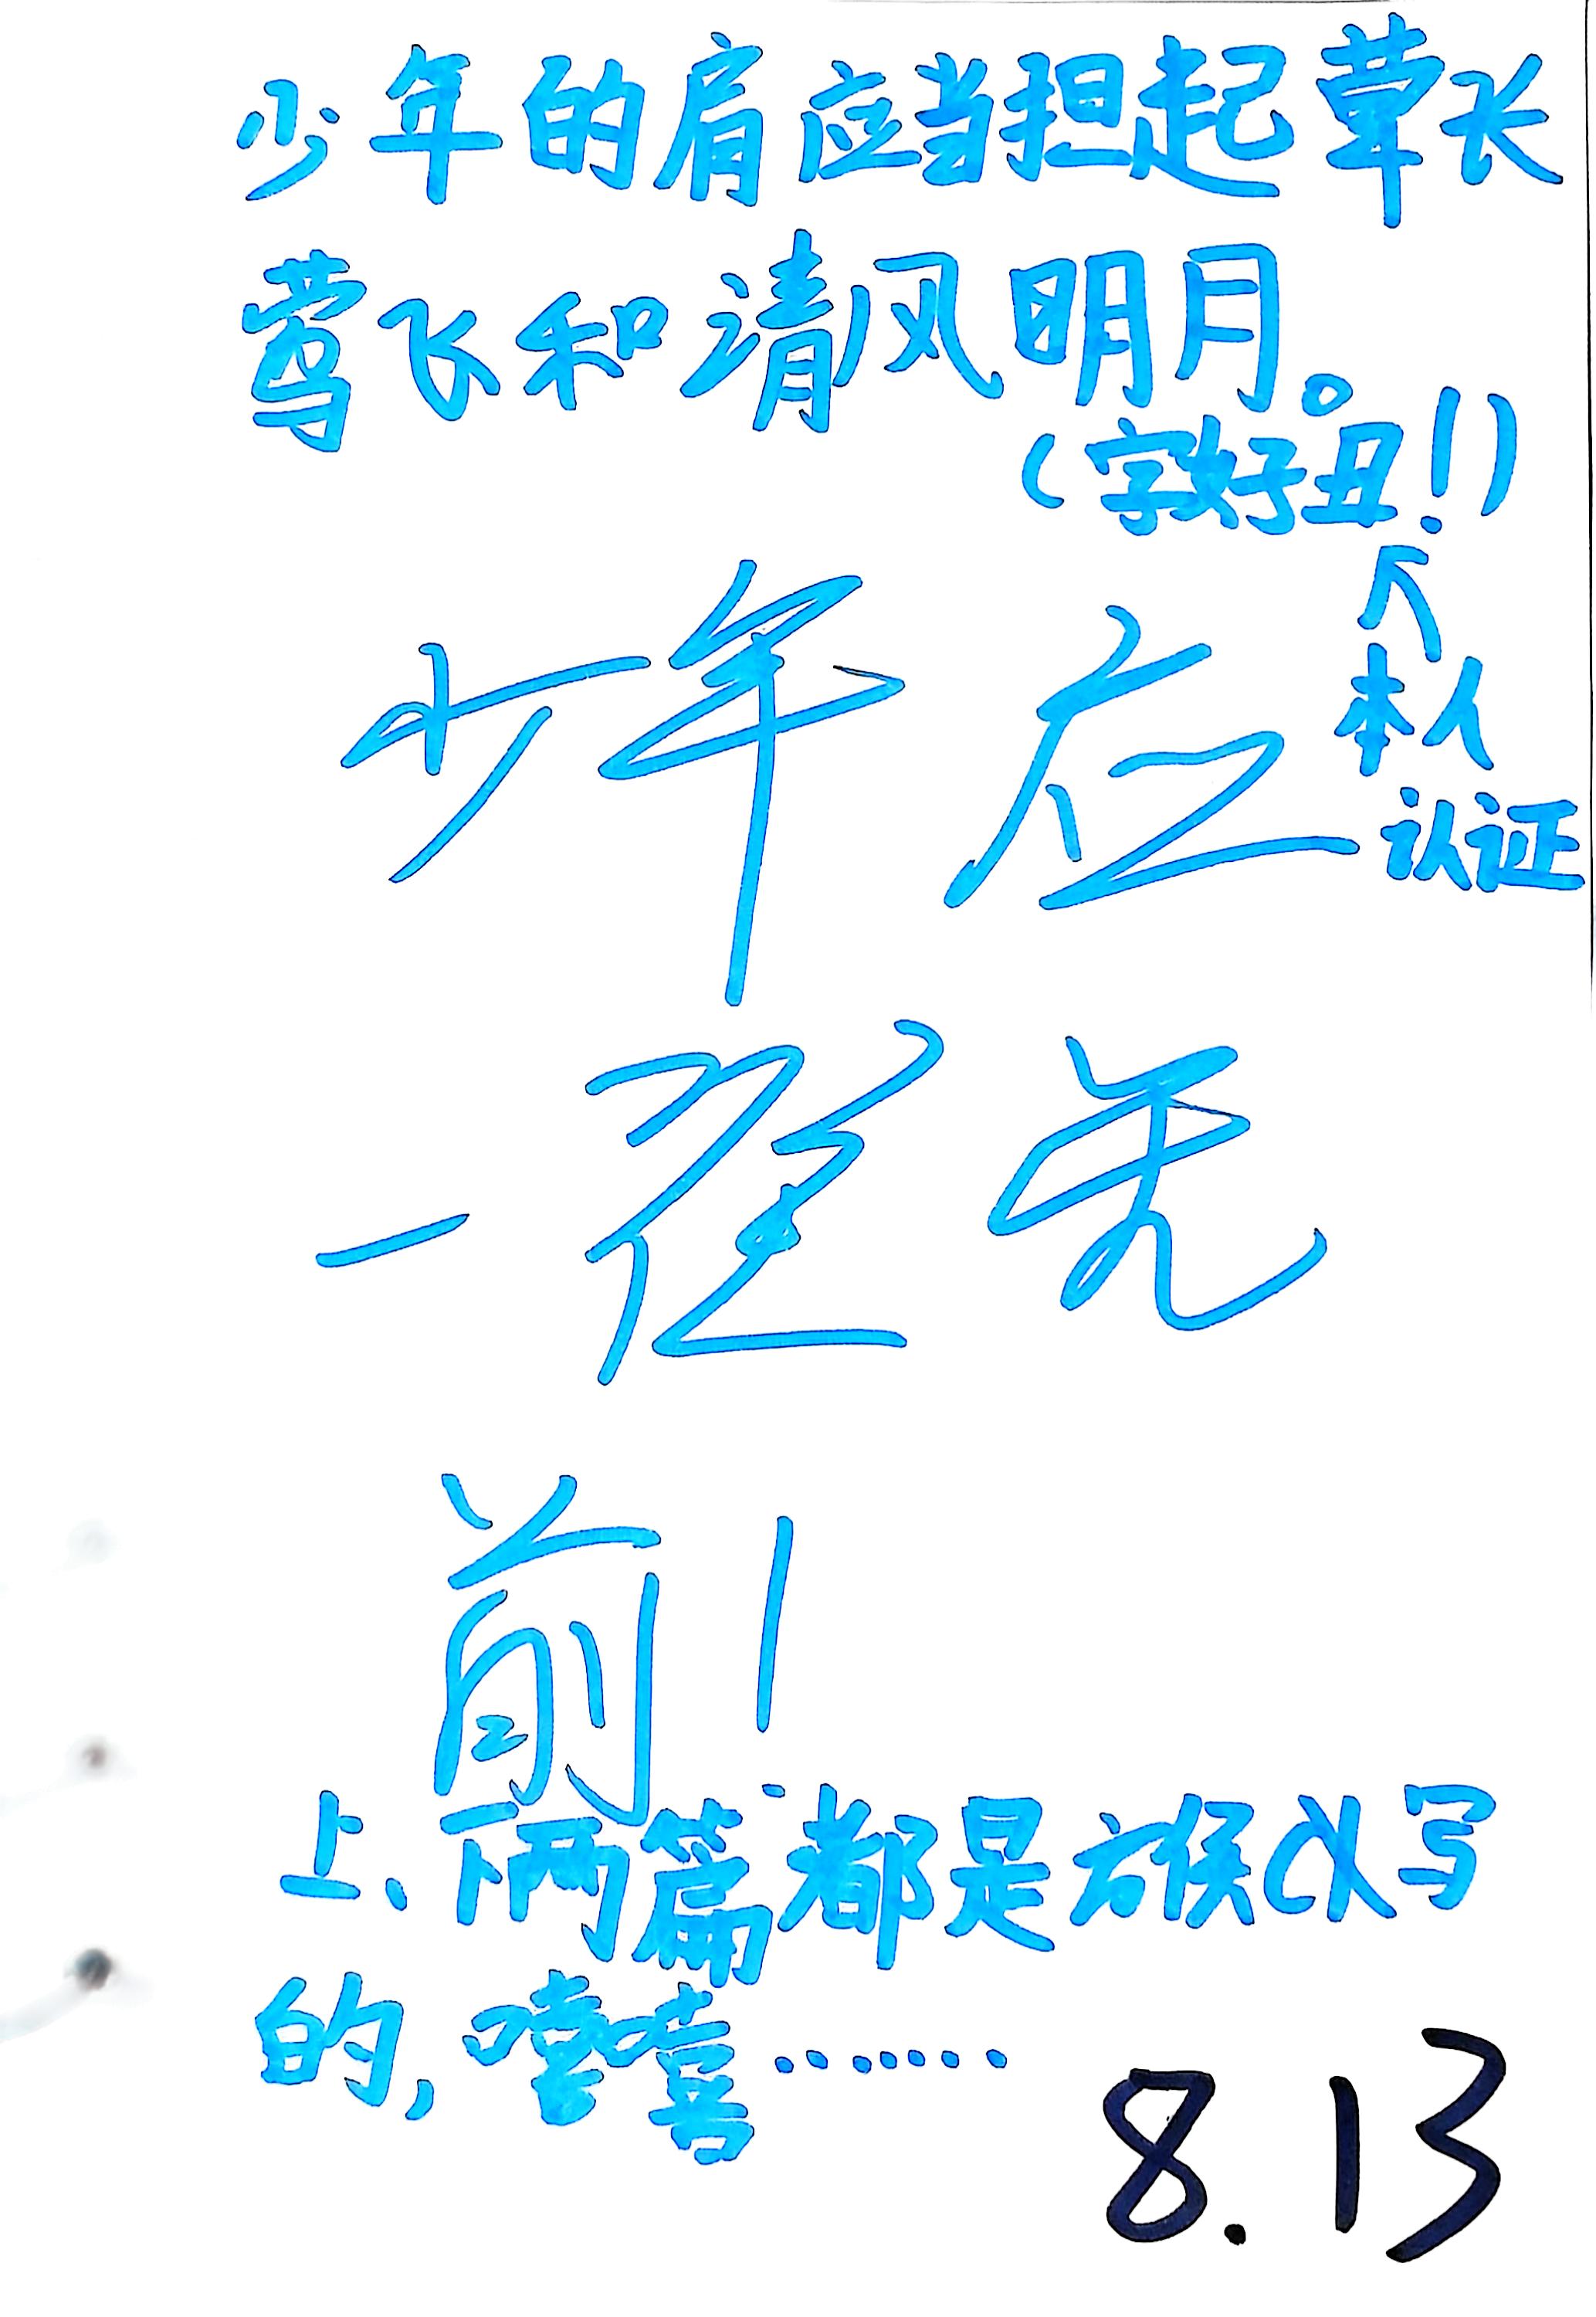 少年的肩应当担起草长
莺飞和清风明月。
(字好丑!)
↖
本人
认证
少年应
一往无
前!
上、下两篇都是写
的,嘻嘻……
8.13